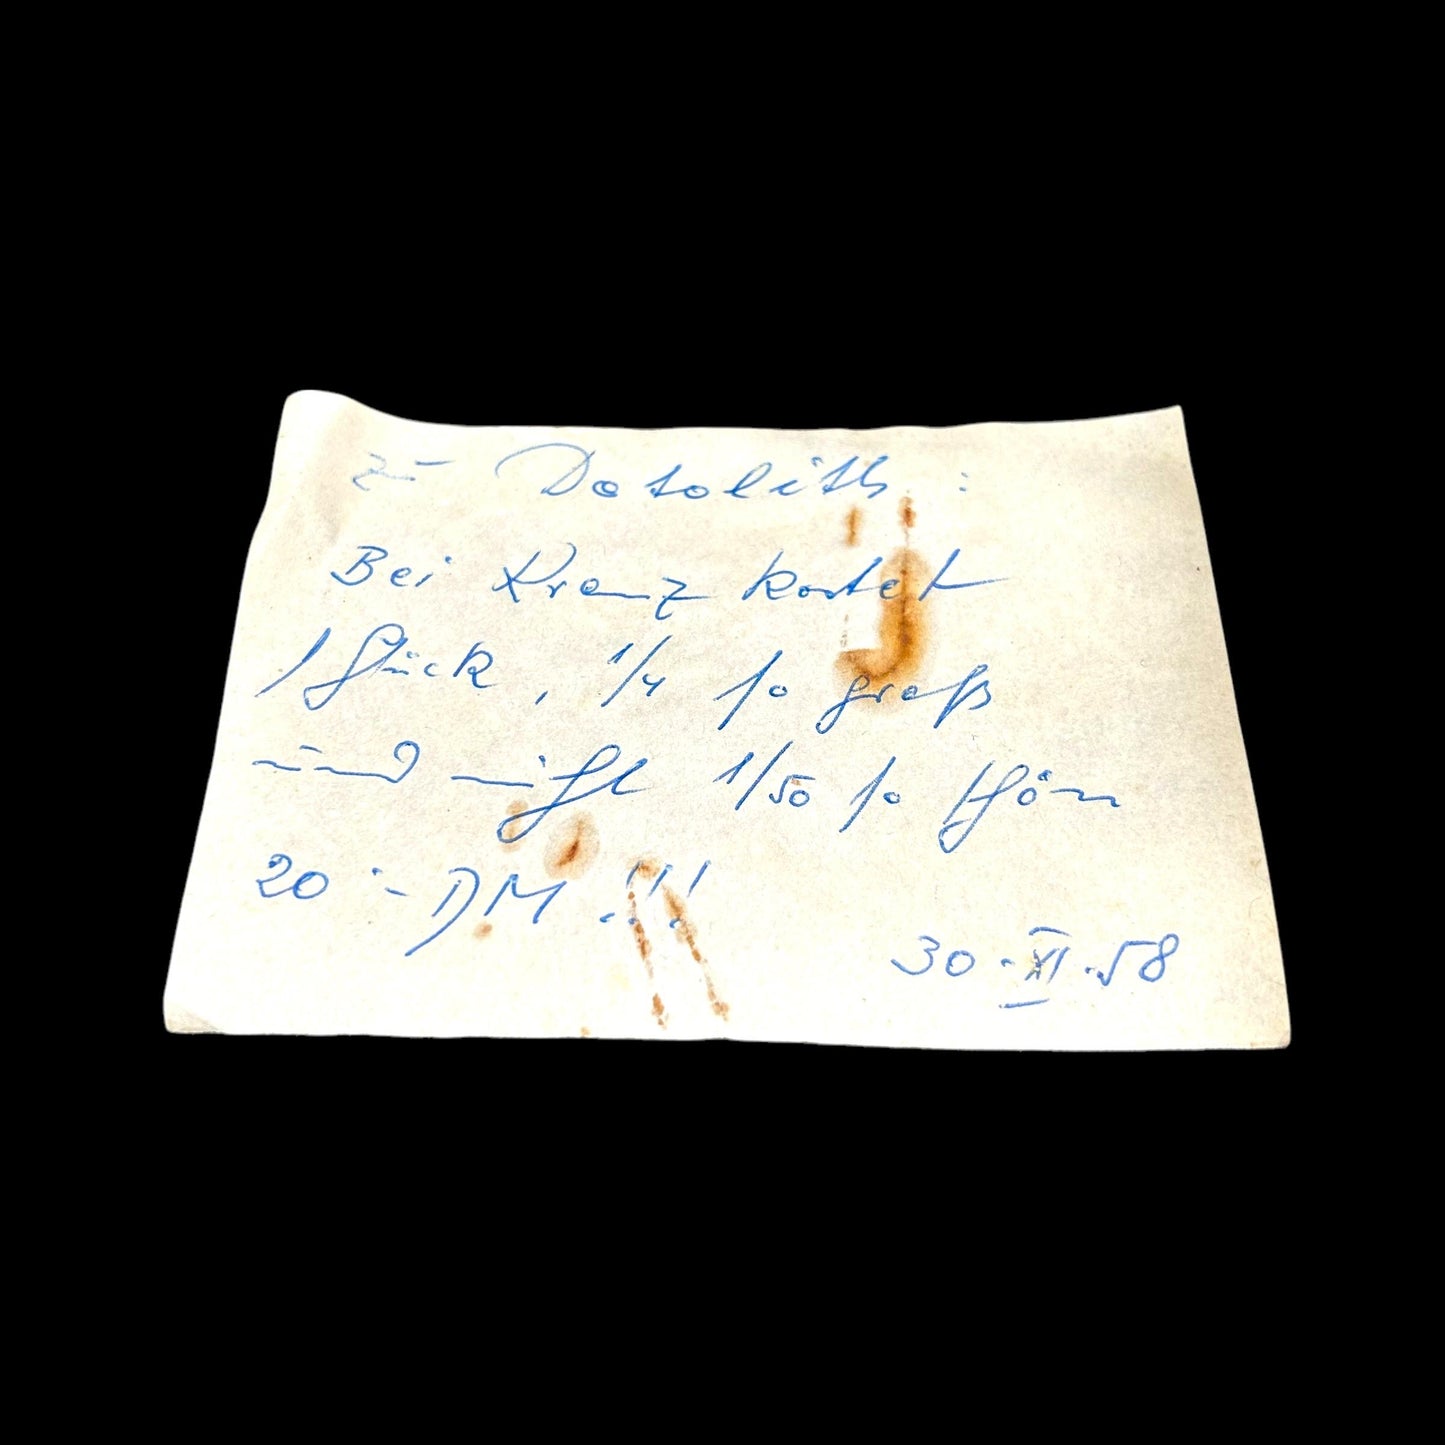 zu Datolith :
Bei Kranz kostet
1 Stück, 1/4 so groß
und nicht 1/50 so schön
20.- DM !!!
30.XI.58